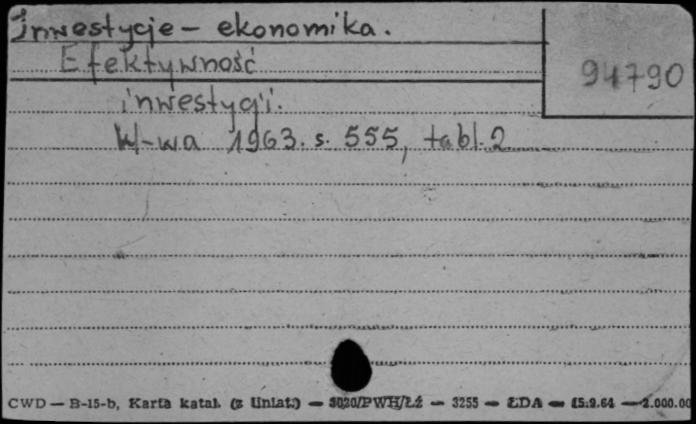 Inwestycje – ekonomika.
Efektywność
94790
inwestycji.
W-wa 1963. s. 555, tabl. 2
CWD — B-15-b, Karta katal. (z liniat.) — 3020/PWH/Łź — 3255 — ŁDA — 15.9.64 — 2.000.00